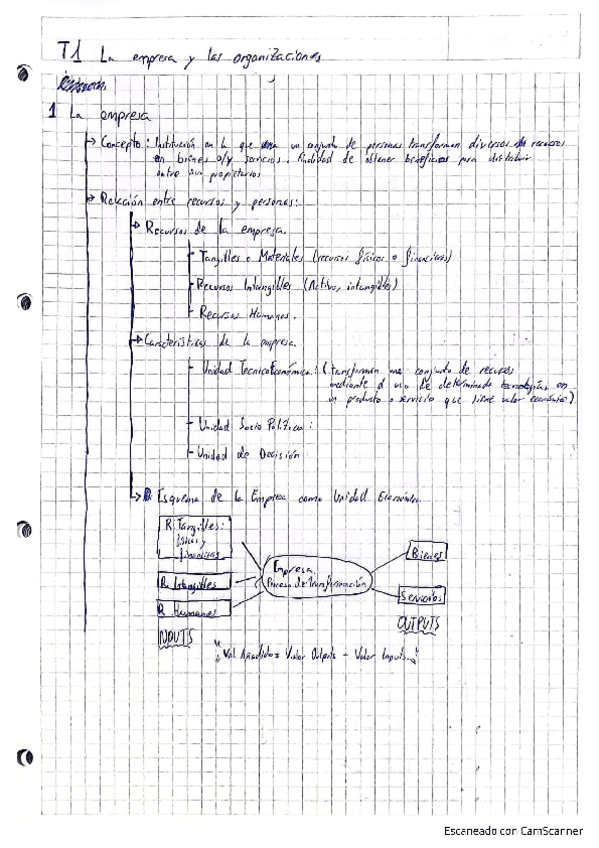 T1 La empresa y las organizaciones
1 La empresa
→ Concepto: Institución en la que un conjunto de personas transforman diversos recursos
en bienes o/y servicios. Finalidad de obtener beneficios para distribuir
entre sus propietarios
→ Relación entre recursos y personas:
→ Recursos de la empresa.
- Tangibles o Materiales (recursos físicos o financieros)
- Recursos Intangibles (Activos, intangibles)
- Recursos Humanos.
→ Características de la empresa.
- Unidad TécnicoEconómica: (transforman una conjunto de recursos
mediante el uso de determinada tecnología, en
un producto o servicio que tiene valor económico)
- Unidad Socio Política:
- Unidad de Decisión
→ Esquema de la Empresa como Unidad Económica.
R. Tangibles:
físicos y
financieros
R. Intangibles
R. Humanos
INPUTS
Empresa.
Proceso de transformación
Bienes
Servicios
OUTPUTS
"Val Añadido = Valor Outputs - Valor Inputs."
Escaneado con CamScanner